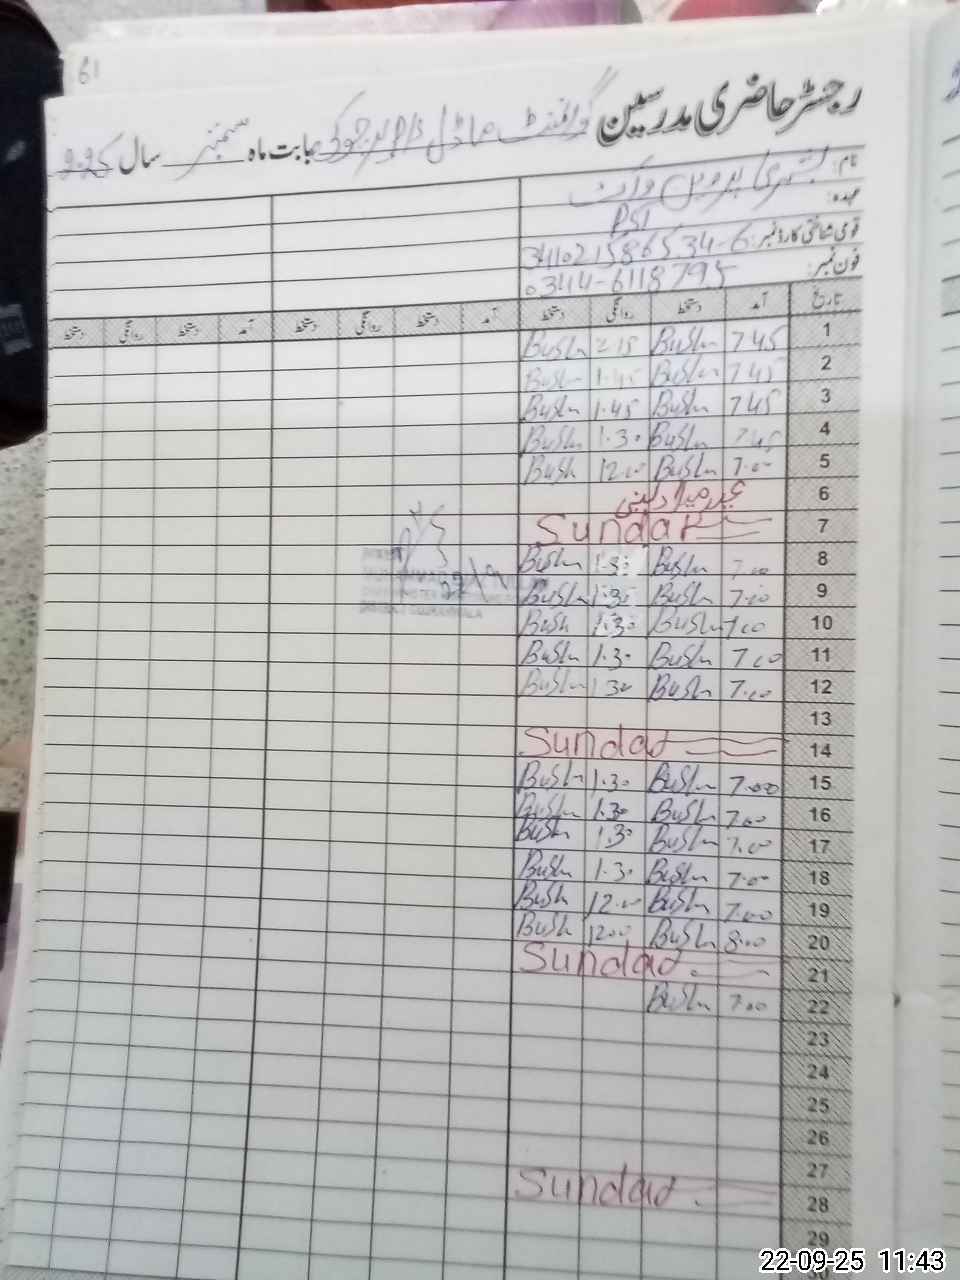 61
رجسٹر حاضری مدرسین گورنمنٹ ماڈل پرائمری بابت ماہ ستمبر سال 2025
نام: بشریٰ پروین
عہدہ: PST
قومی شناختی کارڈ نمبر: 341021586534-6
فون نمبر: 0344-6118795
تاریخ آمد دستخط روانگی دستخط آمد دستخط روانگی دستخط آمد دستخط روانگی دستخط
1 7 45 Bushr 2 15 Bushr
2 7 45 Bushr 1.45 Bushr
3 7 45 Bushr 1.45 Bushr
4 7 45 Bushr 1.30 Bushr
5 7.00 Bushr 12.00 Bush
6 عید میلاد النبی
7 Sunday
8 7.00 Bushr 1.30 Bushr
9 7.00 Bushr 1.30 Bushr
10 7.00 Bushr 1.30 Bush
11 7.00 Bushr 1.30 Bushr
12 7.00 Bushr 1.30 Bushr
13
14 Sunday
15 7.00 Bushr 1.30 Bushr
16 7.00 Bushr 1.30 Bushr
17 7.00 Bushr 1.30 Bushr
18 7.00 Bushr 1.30 Bushr
19 7.00 Bushr 12.00 Bush
20 8.00 Bushr 12.00 Bush
21 Sunday
22 7.00 Bushr
23
24
25
26
27
28 Sunday
29
22-09-25 11:43